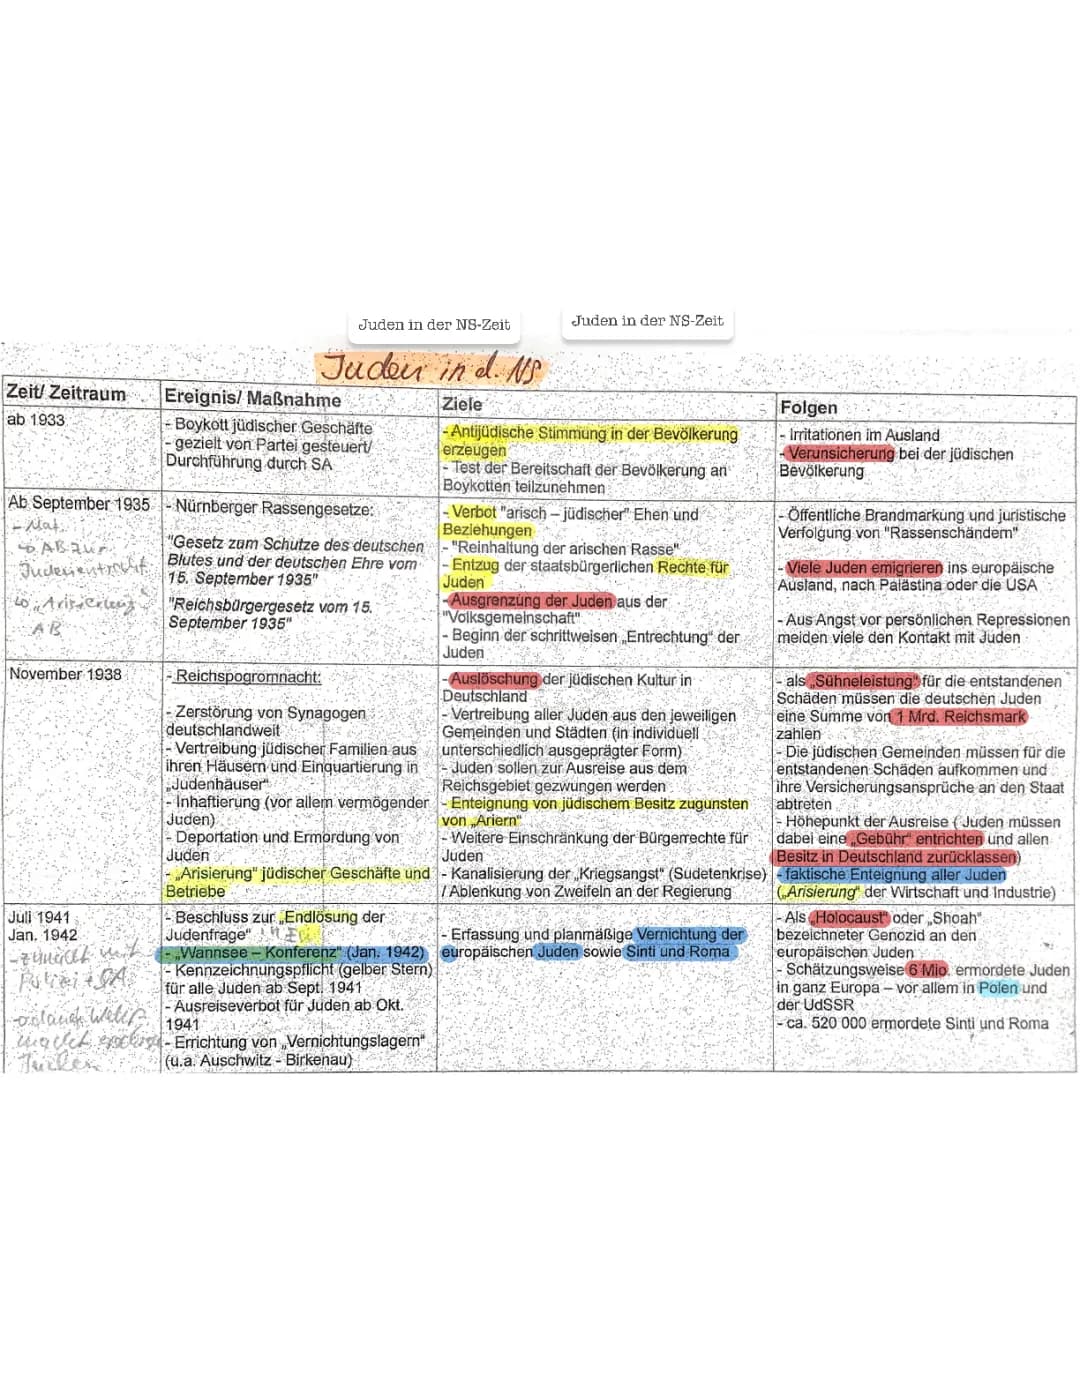 Juden in der NS-Zeit
Juden in der NS-Zeit
Juden in d. NS
Zeit/ Zeitraum
Ereignis/ Maßnahme
Ziele
Folgen
ab 1933
- Boykott jüdischer Geschäfte
- gezielt von Partei gesteuert/
Durchführung durch SA
- Antijüdische Stimmung in der Bevölkerung
erzeugen
- Test der Bereitschaft der Bevölkerung an
Boykotten teilzunehmen
- Irritationen im Ausland
- Verunsicherung bei der jüdischen
Bevölkerung
Ab September 1935
- Mat.
AB zur
AB
- Nürnberger Rassengesetze:
"Gesetz zum Schutze des deutschen
Blutes und der deutschen Ehre vom
15. September 1935"
"Reichsbürgergesetz vom 15.
September 1935"
- Verbot "arisch – jüdischer" Ehen und
Beziehungen
- "Reinhaltung der arischen Rasse"
- Entzug der staatsbürgerlichen Rechte für
Juden
- Ausgrenzung der Juden aus der
"Volksgemeinschaft"
- Beginn der schrittweisen „Entrechtung" der
Juden
- Öffentliche Brandmarkung und juristische
Verfolgung von "Rassenschändern"
- Viele Juden emigrieren ins europäische
Ausland, nach Palästina oder die USA
- Aus Angst vor persönlichen Repressionen
meiden viele den Kontakt mit Juden
November 1938
- Reichspogromnacht:
- Zerstörung von Synagogen
deutschlandweit
- Vertreibung jüdischer Familien aus
ihren Häusern und Einquartierung in
„Judenhäuser"
- Inhaftierung (vor allem vermögender
Juden)
- Deportation und Ermordung von
Juden
- „Arisierung" jüdischer Geschäfte und
Betriebe
- Auslöschung der jüdischen Kultur in
Deutschland
- Vertreibung aller Juden aus den jeweiligen
Gemeinden und Städten (in individuell
unterschiedlich ausgeprägter Form)
- Juden sollen zur Ausreise aus dem
Reichsgebiet gezwungen werden
- Enteignung von jüdischem Besitz zugunsten
von „Ariern"
- Weitere Einschränkung der Bürgerrechte für
Juden
- Kanalisierung der „Kriegsangst" (Sudetenkrise)
/ Ablenkung von Zweifeln an der Regierung
- als „Sühneleistung" für die entstandenen
Schäden müssen die deutschen Juden
eine Summe von 1 Mrd. Reichsmark
zahlen
- Die jüdischen Gemeinden müssen für die
entstandenen Schäden aufkommen und
ihre Versicherungsansprüche an den Staat
abtreten
- Höhepunkt der Ausreise ( Juden müssen
dabei eine „Gebühr" entrichten und allen
Besitz in Deutschland zurücklassen)
- faktische Enteignung aller Juden
(„Arisierung" der Wirtschaft und Industrie)
Juli 1941
Jan. 1942
- zunächst mit
Polizei + SA
Juden
- Beschluss zur „Endlösung der
Judenfrage"
- „Wannsee – Konferenz" (Jan. 1942)
- Kennzeichnungspflicht (gelber Stern)
für alle Juden ab Sept. 1941
- Ausreiseverbot für Juden ab Okt.
1941
- Errichtung von „Vernichtungslagern"
(u.a. Auschwitz - Birkenau)
- Erfassung und planmäßige Vernichtung der
europäischen Juden sowie Sinti und Roma
- Als „Holocaust" oder „Shoah"
bezeichneter Genozid an den
europäischen Juden
- Schätzungsweise 6 Mio. ermordete Juden
in ganz Europa – vor allem in Polen und
der UdSSR
- ca. 520 000 ermordete Sinti und Roma